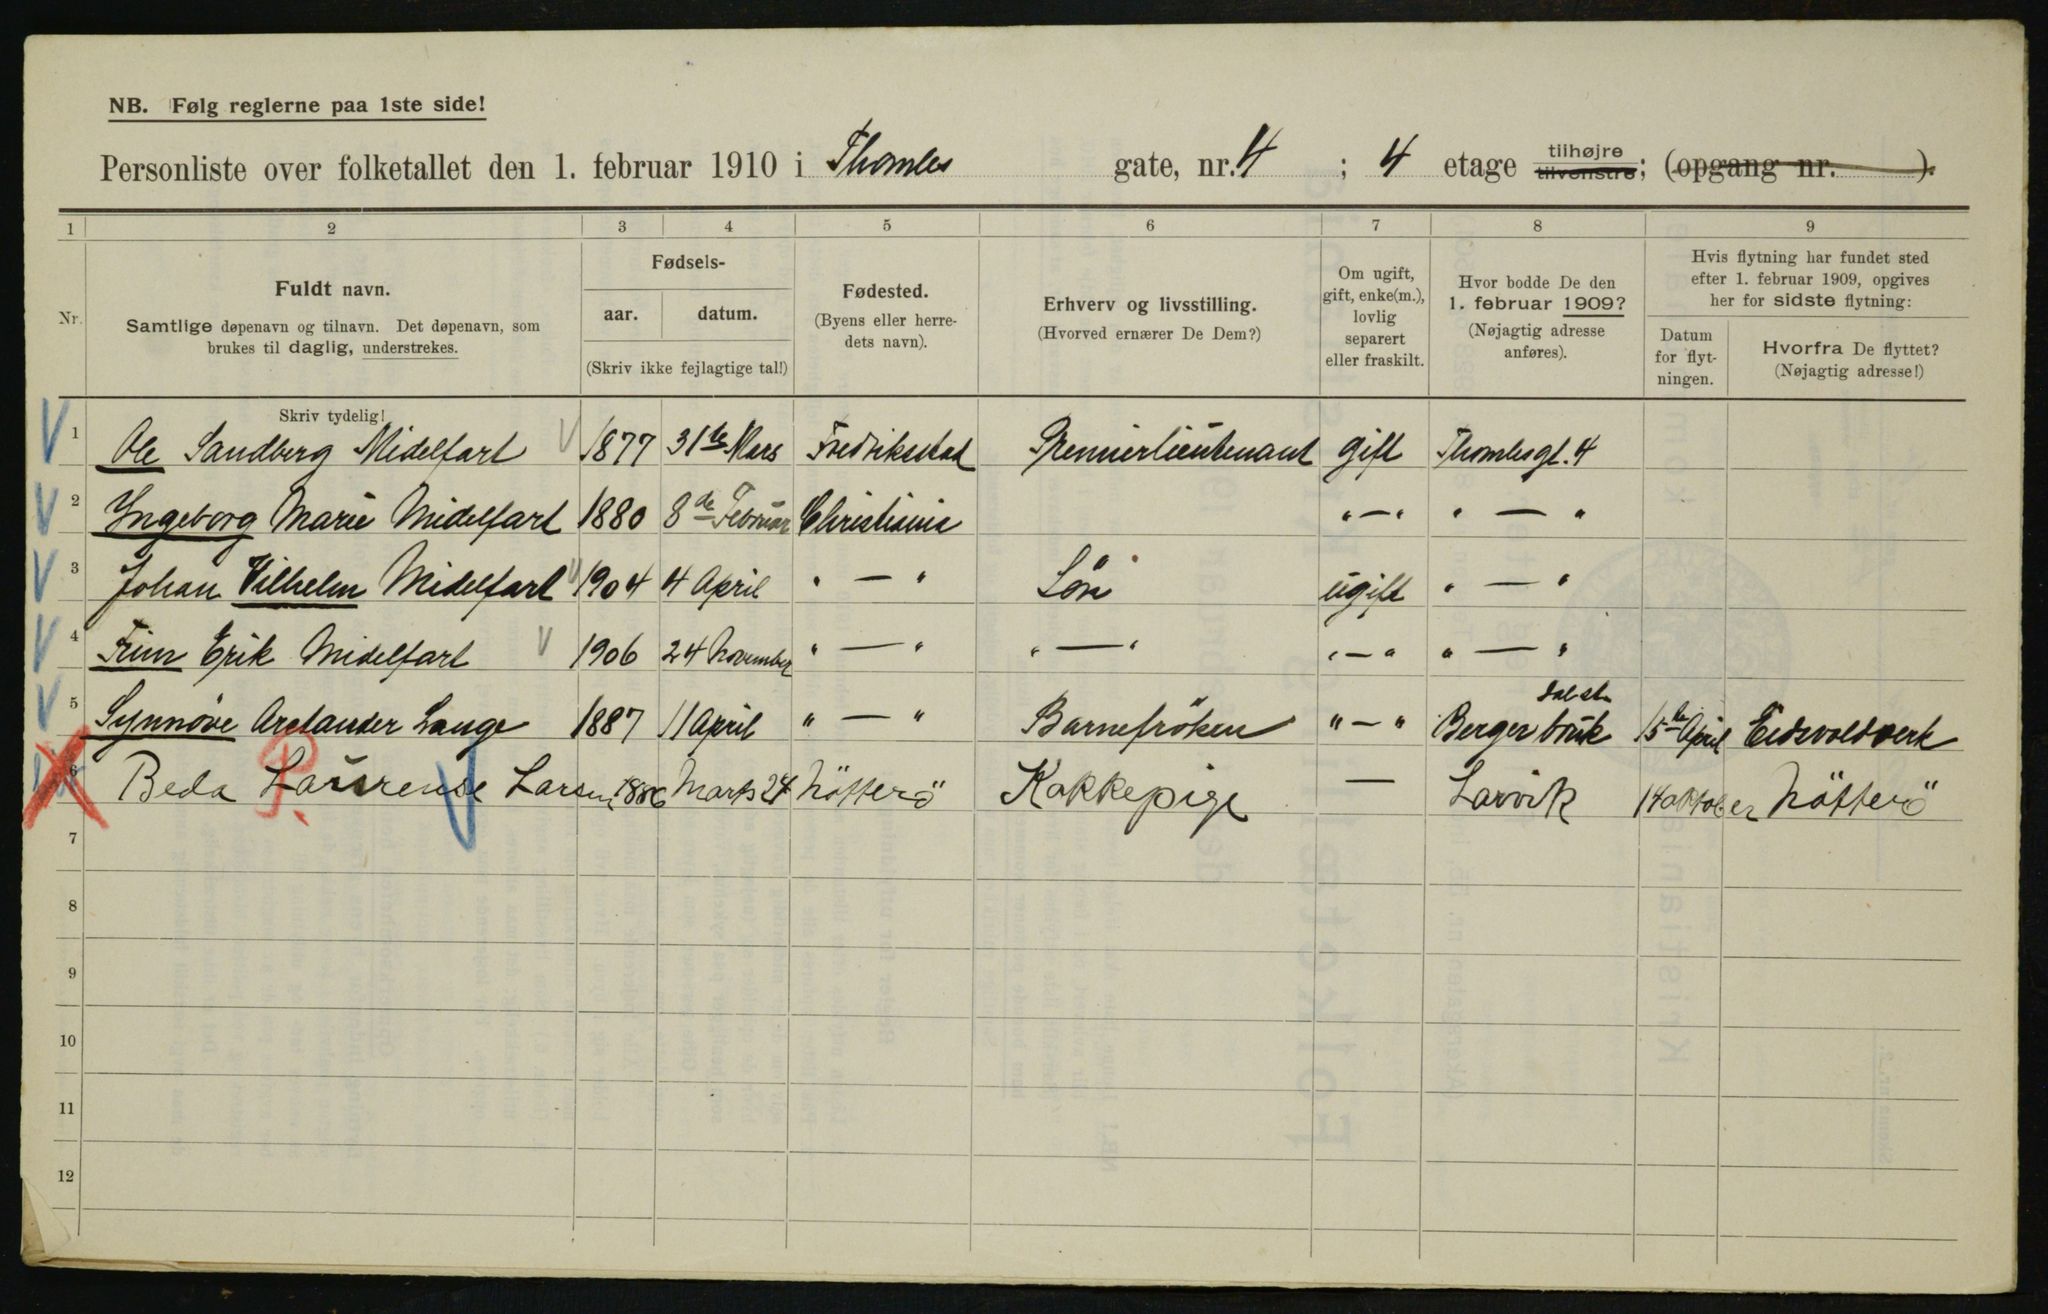 NB. Følg reglerne paa 1ste side!
Personliste over folketallet den 1. februar 1910 i Thomles gate, nr. 4 ; 4 etage tilhøjre tilvenstre; (opgang nr. ).
1 2 3 4 5 6 7 8 9
Nr.
Fuldt navn.
Samtlige døpenavn og tilnavn. Det døpenavn, som
brukes til daglig, understrekes.
Skriv tydelig!
Fødsels-
aar. datum.
(Skriv ikke fejlagtige tal!)
Fødested.
(Byens eller herre-
dets navn).
Erhverv og livsstilling.
(Hvorved ernærer De Dem?)
Om ugift,
gift, enke(m.),
lovlig
separert
eller fraskilt.
Hvor bodde De den
1. februar 1909?
(Nøjagtig adresse
anføres).
Hvis flytning har fundet sted
efter 1. februar 1909, opgives
her for sidste flytning:
Datum
for flyt-
ningen.
Hvorfra De flyttet?
(Nøjagtig adresse!)
1 Ole Sandberg Midelfart 1877 31te Mars Fredriksstad Premierlieutenant gift Thomlesgt. 4
2 Ingeborg Marie Midelfart 1880 8de Februar Christiania " — " " — "
3 Johan Vilhelm Midelfart 1904 4 April " — " Søn ugift " — "
4 Finn Erik Midelfart 1906 24 November " — " " — " " — " " — "
5 Synnöve Arctander Lange 1887 11 April " — " Barnefröken " — " Berger bruk 15de April Eidsvoldværk
6 Beda Laurense Larsen 1886 Marts 24 Nötterö Kokkepige — Larvik 14 oktober Nötterö
P.
7
8
9
10
11
12